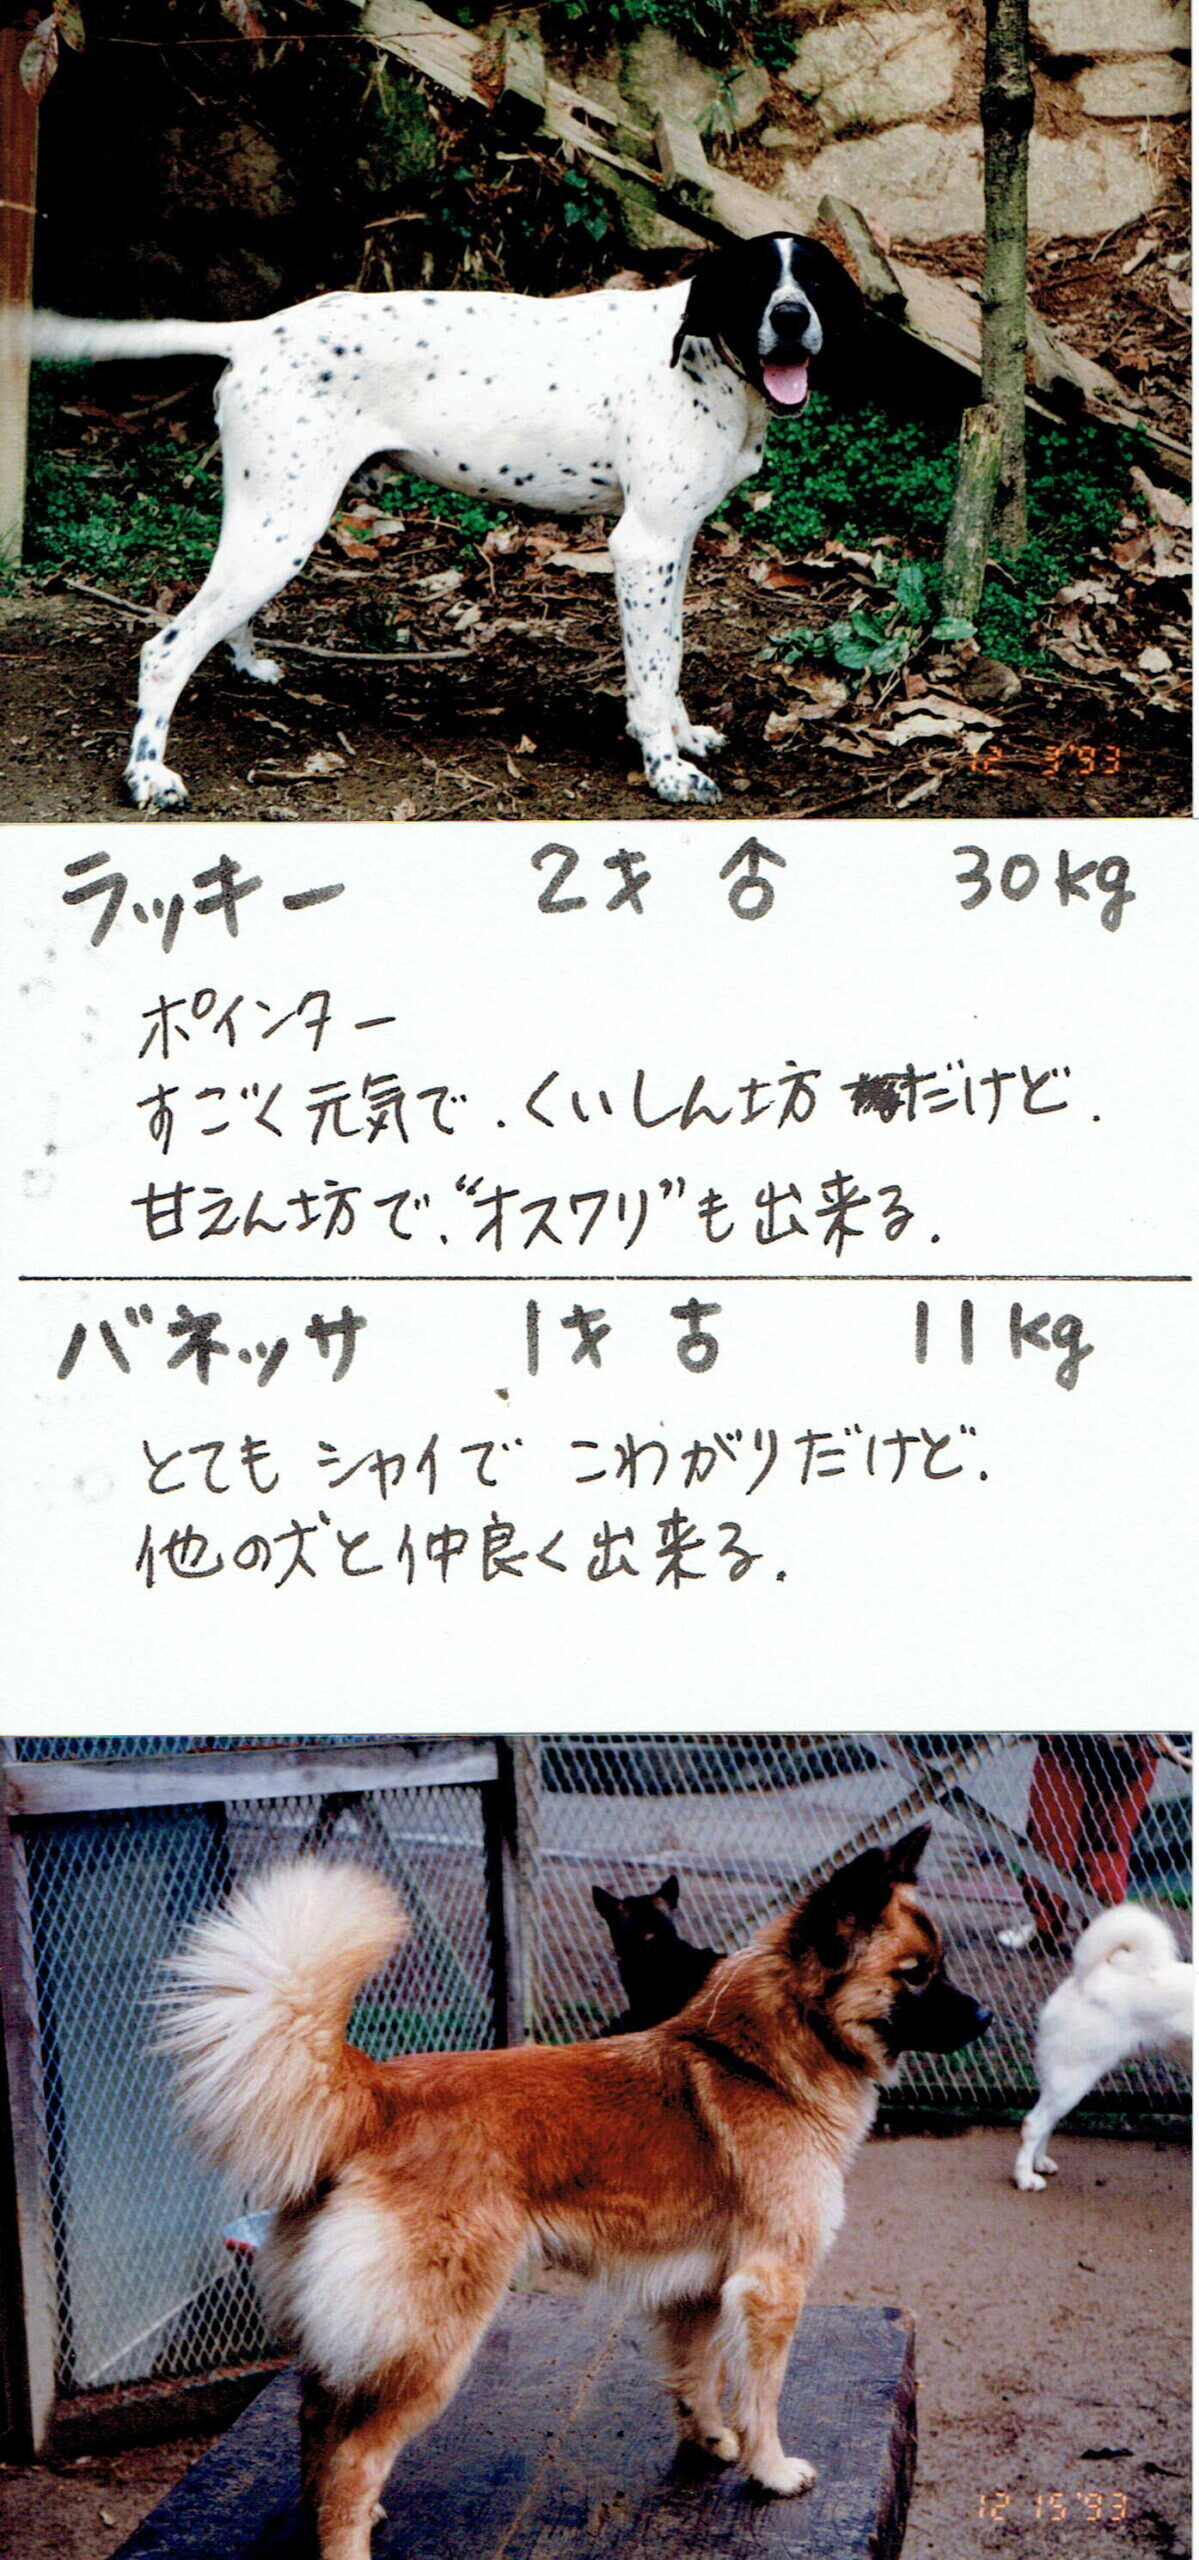 12 3'93
ラッキー 2才 ♂ 30kg
ポインター
すごく元気で、くいしん坊だけど、
甘えん坊で、“オスワリ”も出来る。
バネッサ 1才 ♀ 11kg
とても シャイで こわがりだけど、
他の犬と仲良く出来る。
12 15'93